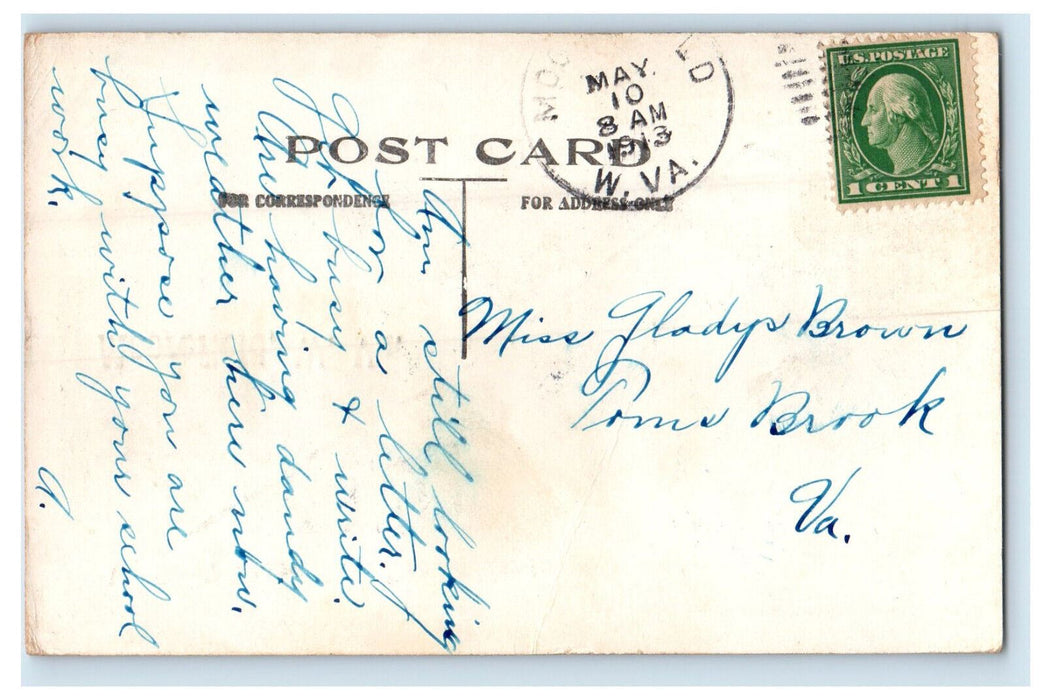 POST CARD
FOR CORRESPONDENCE
FOR ADDRESS ONLY
MAY
10
8 AM
1913
W. VA.
U.S. POSTAGE
1 CENT 1
Miss Gladys Brown
Toms Brook
Va.
Am still looking
for a letter.
Get busy & write.
Are having dandy
weather here now.
Suppose you are
busy with your school
work.
A.